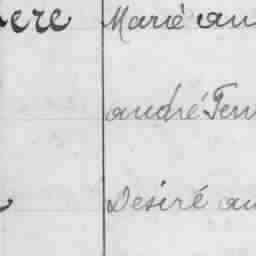 ere Marié au
andré Fer
Desiré au